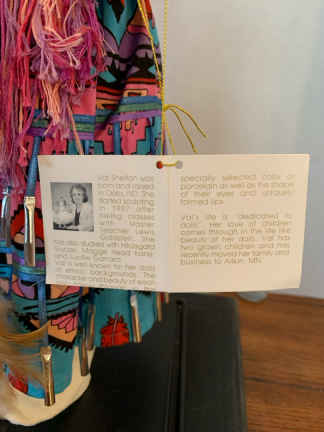 Val Shelton was
born and raised
in Oslo, ND. She
started sculpting
in 1987 after
taking classes
with Master
Teacher Lewis
Goldstein. She
has also studied with Hildegard
Maggie Head Kane,
and Lucille
Val is well known for her dolls
of ethnic backgrounds. The
character and beauty of each
specially selected color of
porcelain as well as the shape
of their eyes and uniquely
formed lips.
Val's life is "dedicated to
dolls". Her love of children
comes through in the life like
beauty of her dolls. Val has
two grown children and has
recently moved her family and
business to Aitkin, MN.